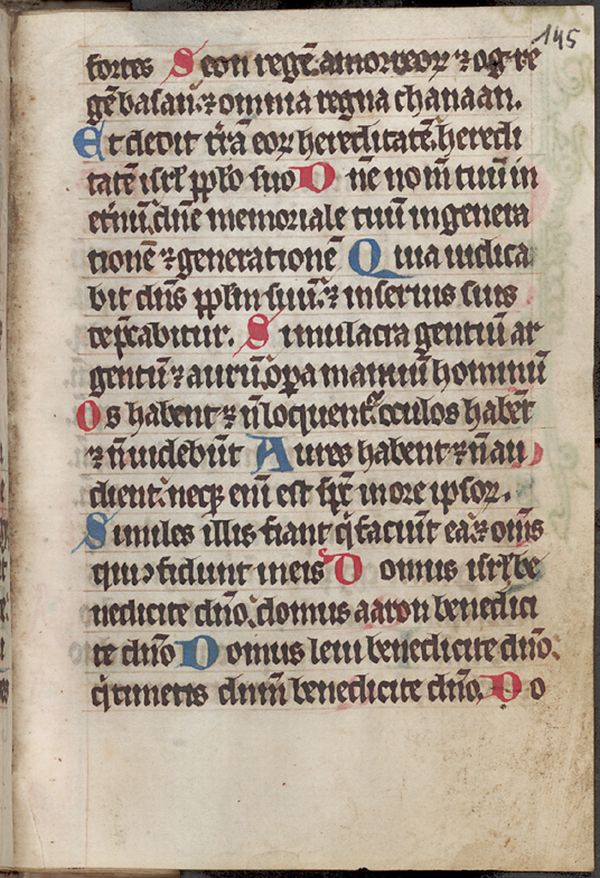 145
fortes Seon regē amorreoꝝ ⁊ og re
gē basan ⁊ omnia regna chanaan.
Et dedit t̄rā eoꝝ hereditatē heredi
tatē isrl̄ ppl̄o suo Dn̄e nom̄ tuū in
et̄nū dn̄e memoriale tuū in genera
tionē ⁊ generationē Quia iudica
bit dn̄s ppl̄m suū ⁊ in seruis suis
dep̄cabitur. Simulacra gentiū ar
gentū ⁊ aurū op̄a manuū hominū
Os habent ⁊ n̄ loquent᷑ oculos habēt
⁊ n̄ uidebūt Aures habent ⁊ n̄ au
dient neqꝫ enī est sp̄c in ore ipsoꝝ.
Similes illis fiant q̄ faciūt ea ⁊ om̄s
qui ꝯfidunt in eis Domus isrl̄ be
nedicite dn̄o domus aaron benedici
te dn̄o Domus leui benedicite dn̄o
q̄ timetis dn̄m benedicite dn̄o. Do